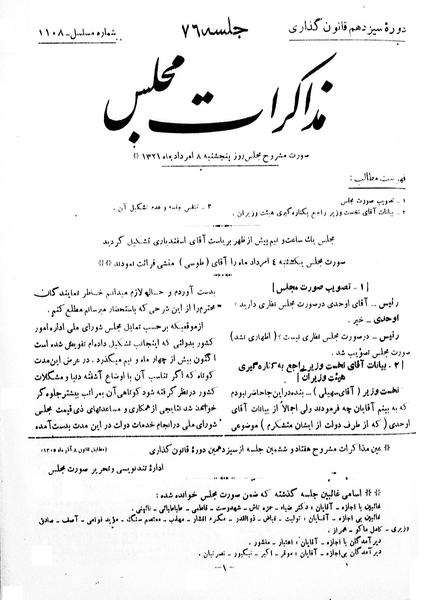 دورهٔ سیزدهم قانون گذاری
جلسه ۷۶
شماره مسلسل - ۱۱۰۸
مذاکرات مجلس
صورت مشروح مجلس روز پنجشنبه ۸ امرداد ماه ۱۳۲۱
فهرست مطالب:
۱ - تصویب صورت مجلس
۲ - بیانات آقای نخست وزیر راجع بکناره گیری هیئت وزیران.
۳ - تنفس جلسه و عدم تشکیل آن.
مجلس یک ساعت و نیم پیش از ظهر بریاست آقای اسفندیاری تشکیل گردید
صورت مجلس یکشنبه ٤ امرداد ماه را آقای (طوسی) منشی قرائت نمودند
[۱ - تصویب صورت مجلس]
رئیس - آقای اوحدی در صورت مجلس نظری دارید؟
اوحدی - خیر.
رئیس - در صورت مجلس نظری نیست؟ (اظهاری نشد)
صورت مجلس تصویب شد.
[۲ - بیانات آقای نخست وزیر راجع به کناره گیری
هیئت وزیران]
نخست وزیر (آقای سهیلی) - بنده در این جا حاضر نبودم
که به بینم آقایان چه فرمودند ولی اجمالا از بیانات آقای
اوحدی (که از طرف دولت از ایشان متشکرم) موضوعی
بدست آوردم و حالا لازم میدانم خاطر نمایندگان
محترم را از این شرحی که باستحضار میرسانم مطلع کنم.
از موقعیکه بر حسب تمایل مجلس شورای ملی اداره امور
کشور بدولتی که اینجانب تشکیل داده‌ام تفویض شده است
تا کنون بیش از چهار ماه و نیم میگذرد. در عرض این مدت
کوتاه که اگر تناسب آن با اوضاع آشفته دنیا و مشکلات
کشور در نظر گرفته شود کوتاهی آن بمراتب بیشتر جلوه گر
خواهد شد نتایجی از همکاری و مساعدتهای ذی قیمت مجلس
شورای ملی در انجام خدمات دولت در این مدت بدست آمده
عین مذاکرات مشروح هفتاد و ششمین جلسه از سیزدهمین دورهٔ قانون گذاری
(مطابق قانون ۸ آذر ماه ۱۳۰۵)
اداره تندنویسی و تحریر صورت مجلس
اسامی غائبین جلسه گذشته که ضمن صورت مجلس خوانده شده:
غائبین با اجازه - آقایان: دکتر ضیاء - حمزه تاش - شهدوست - فاطمی - طباطبائی - نائینی.
غائبین بی اجازه - آقایان: تولیت - فیاض - ذوالقدر - مکرم افشار - مهذب - معتصم سنگ - مؤید قوامی - آصف - صادق
وزیری - کامل ماکو - همراز.
دیر آمدگان با اجازه - آقایان: اعتبار - منشور.
دیر آمدگان بی اجازه - آقایان: موقر - اکبر - نیکپور - نصرتیان.
- ۱ -